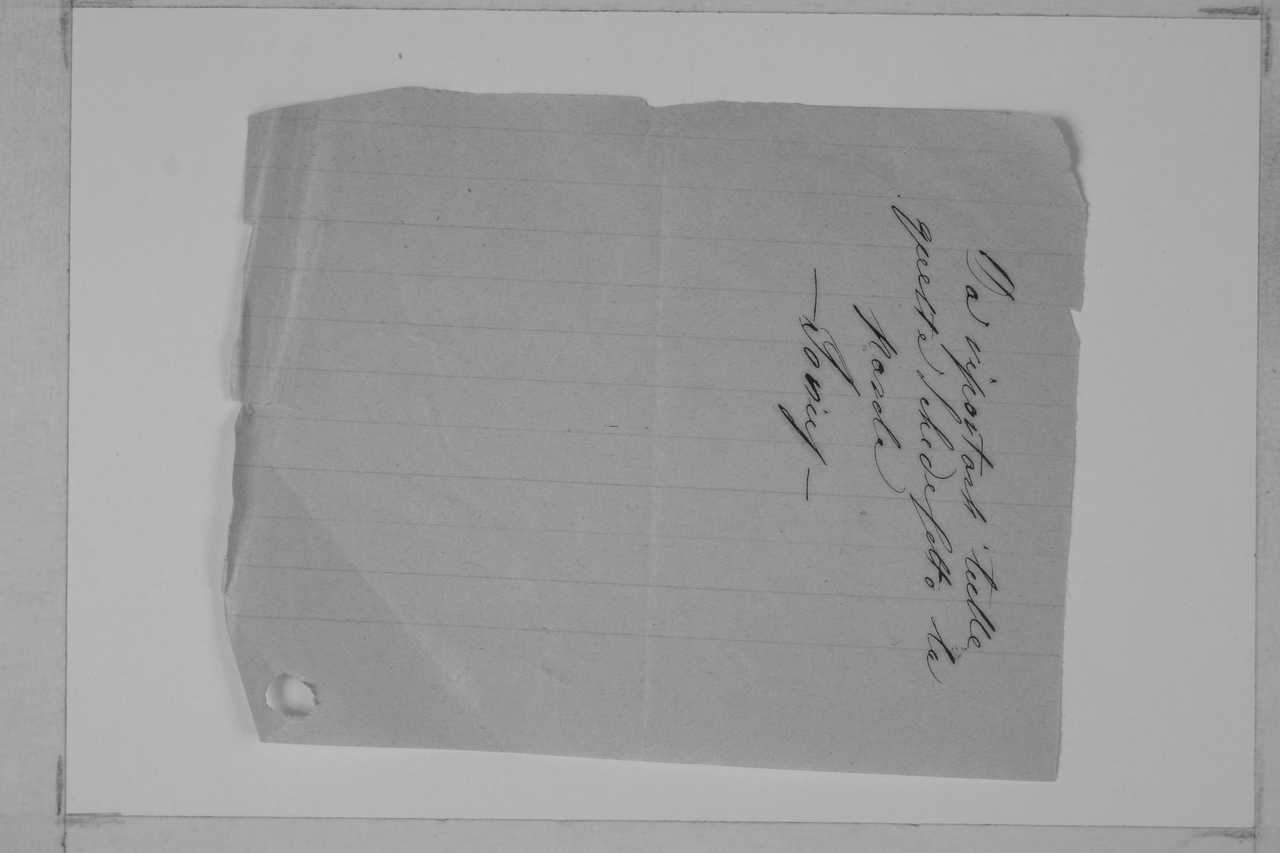 Da riportarsi tutte
queste schede sotto la
Parola
— Tonicy —